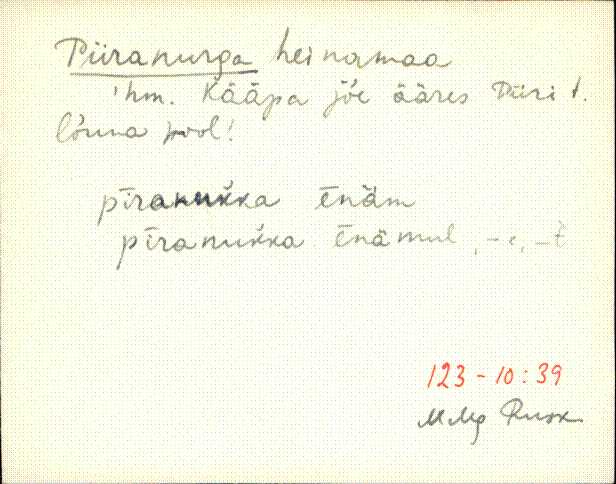 Piiranurga heinamaa
'hm. Kääpa jõe ääres Piiri t.
lõuna pool!
pīranukka ēnäm
pīranukka ēnämul, -e, -t
123-10:39